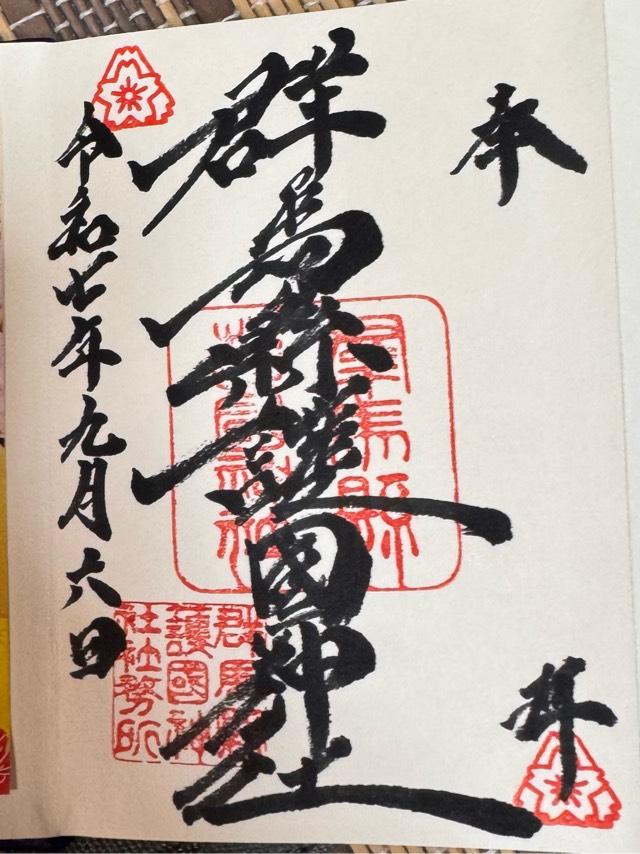 奉
拝
群馬縣護國神社
群馬縣
護國神社
群馬縣
護國神
社社務所
令和七年九月六日